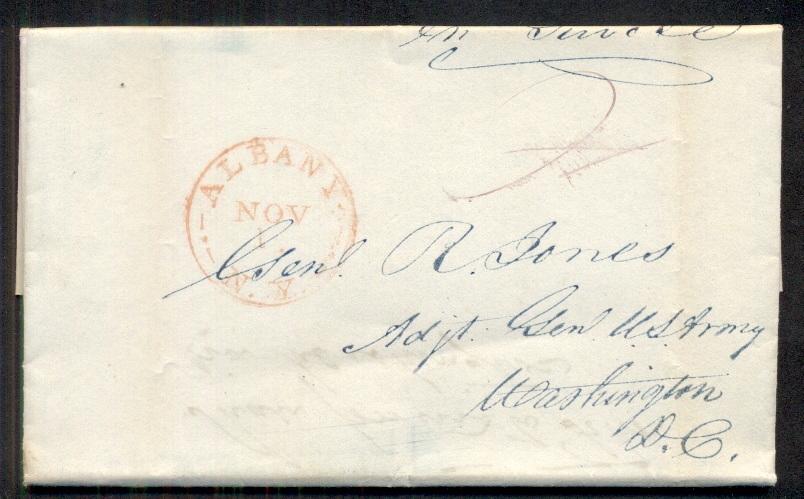 On Service
ALBANY
NOV
1
N.Y.
Genl. R. Jones
Adjt. Genl. U.S. Army
Washington
D.C.